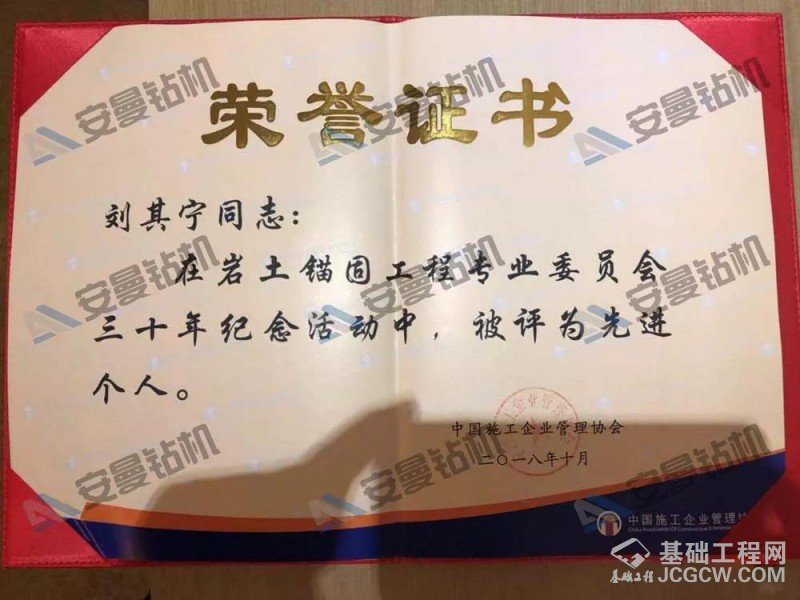 荣誉证书
刘其宁同志：
在岩土锚固工程专业委员会
三十年纪念活动中，被评为先进
个人。
中国施工企业管理协会
二〇一八年十月
中国施工企业管理协
China Association Of Construction Enterprise
安曼钻机
安曼钻机
安曼钻机
安曼钻机
安曼钻机
安曼钻机
安曼钻机
安曼钻机
安曼钻机
基础工程网
基础工程
JCGCW.COM